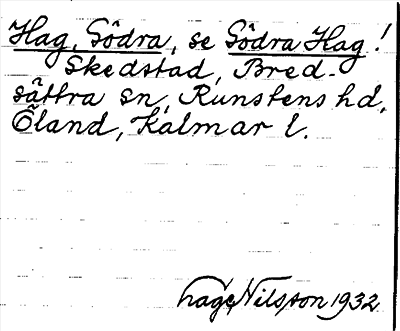 Hag, Södra, se Södra Hag!
Skedstad, Bred-
sättra sn, Runstens hd,
Öland, Kalmar l.
hage, Nilsson 1932